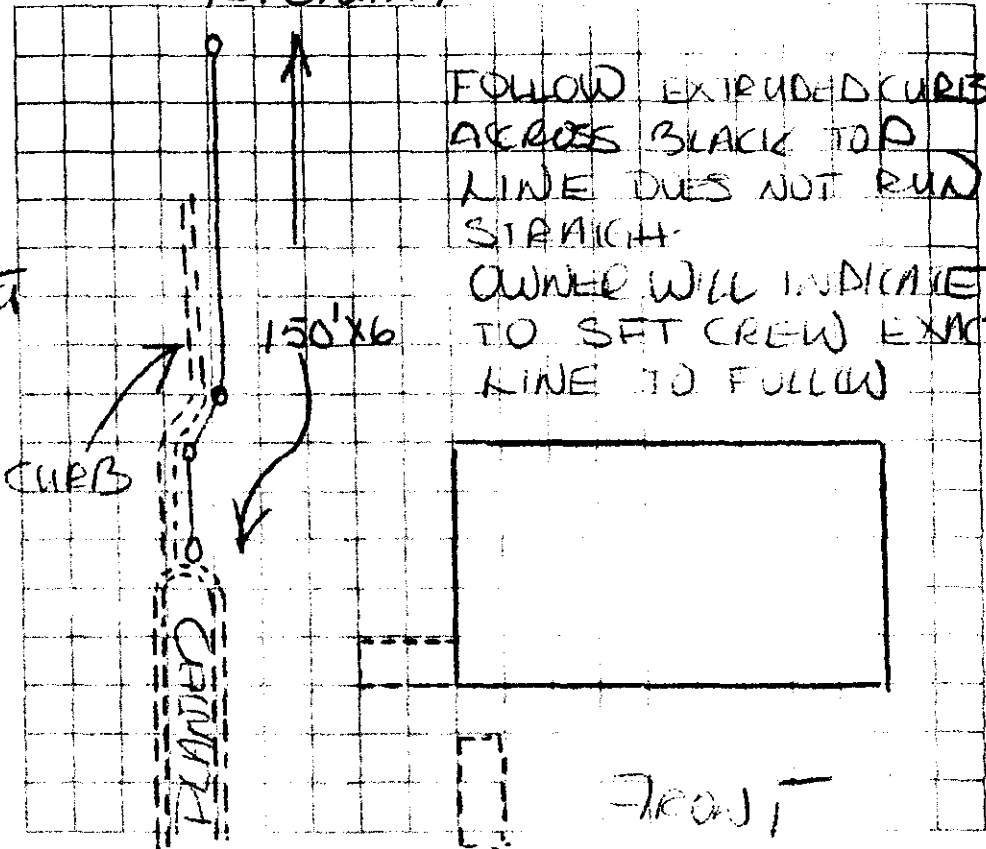 FOLLOW EXTRUDED CURB
ACROSS BLACK TOP
LINE DOES NOT RUN
STRAIGH
OWNER WILL INDICATE
TO SET CREW EXAC
LINE TO FOLLOW
150'X6
CURB
PLANTER
FRONT